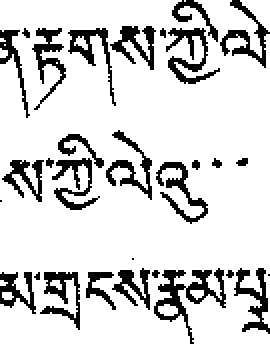 ན་རྟགས་ཀྱི་ལེ
ས་ཀྱི་ལེའུ་...
མ་གྲངས་རྣམ་པྲ